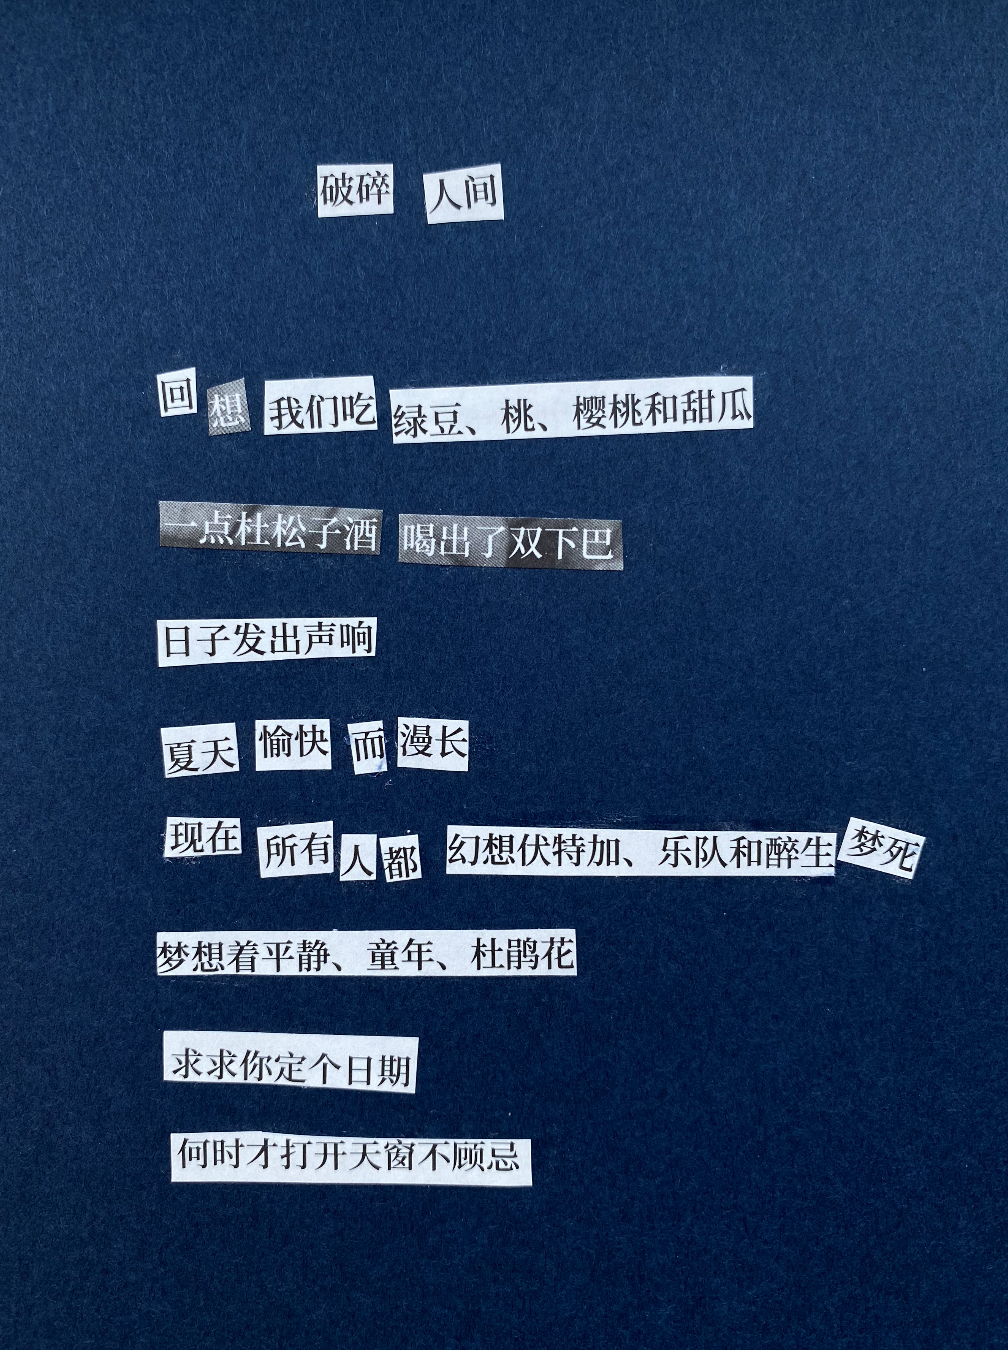 破碎 人间
回想 我们吃 绿豆、桃、樱桃和甜瓜
一点杜松子酒 喝出了双下巴
日子发出声响
夏天 愉快 而 漫长
现在 所有人都 幻想伏特加、乐队和醉生梦死
梦想着平静、童年、杜鹃花
求求你定个日期
何时才打开天窗不顾忌